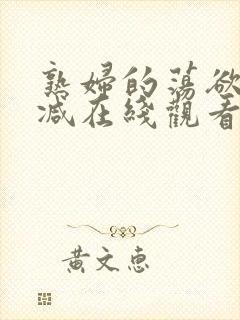 熟婦的蕩欲
減在綫觀看
黃文惠